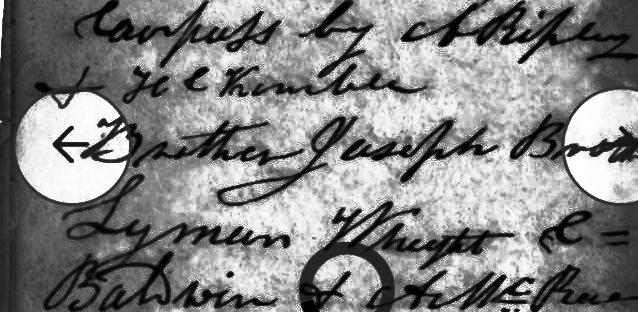 Compass by A Ripley
& H C Kimble
Brother Joseph Brot
Lyman Wheight & =
Baldwin & A McRae